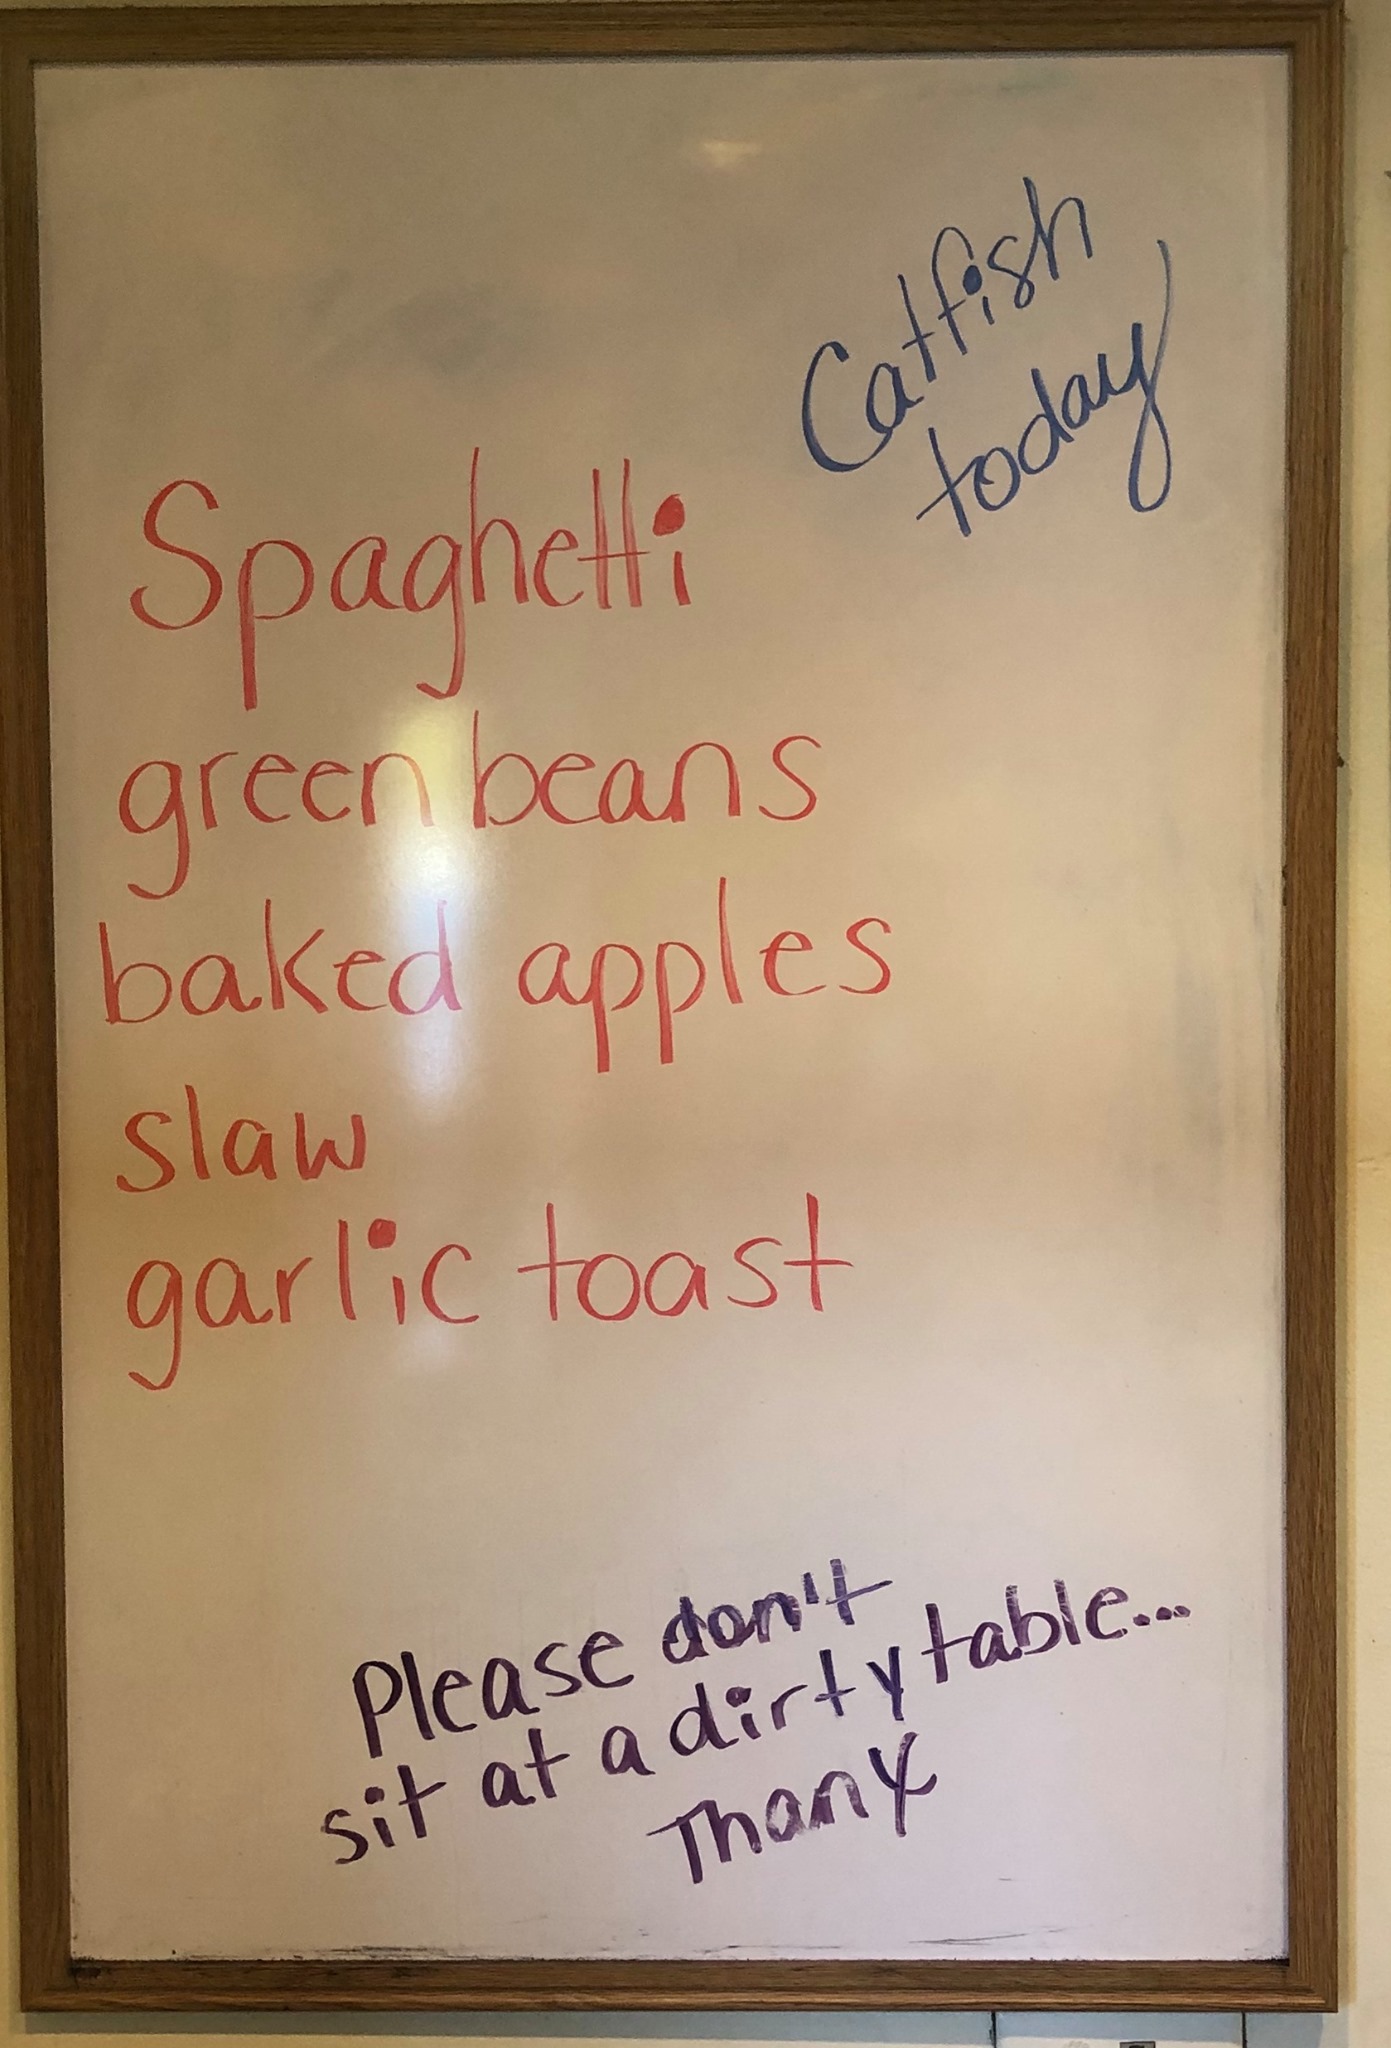 Catfish
today
Spaghetti
green beans
baked apples
slaw
garlic toast
Please don't
sit at a dirty table...
Thanx